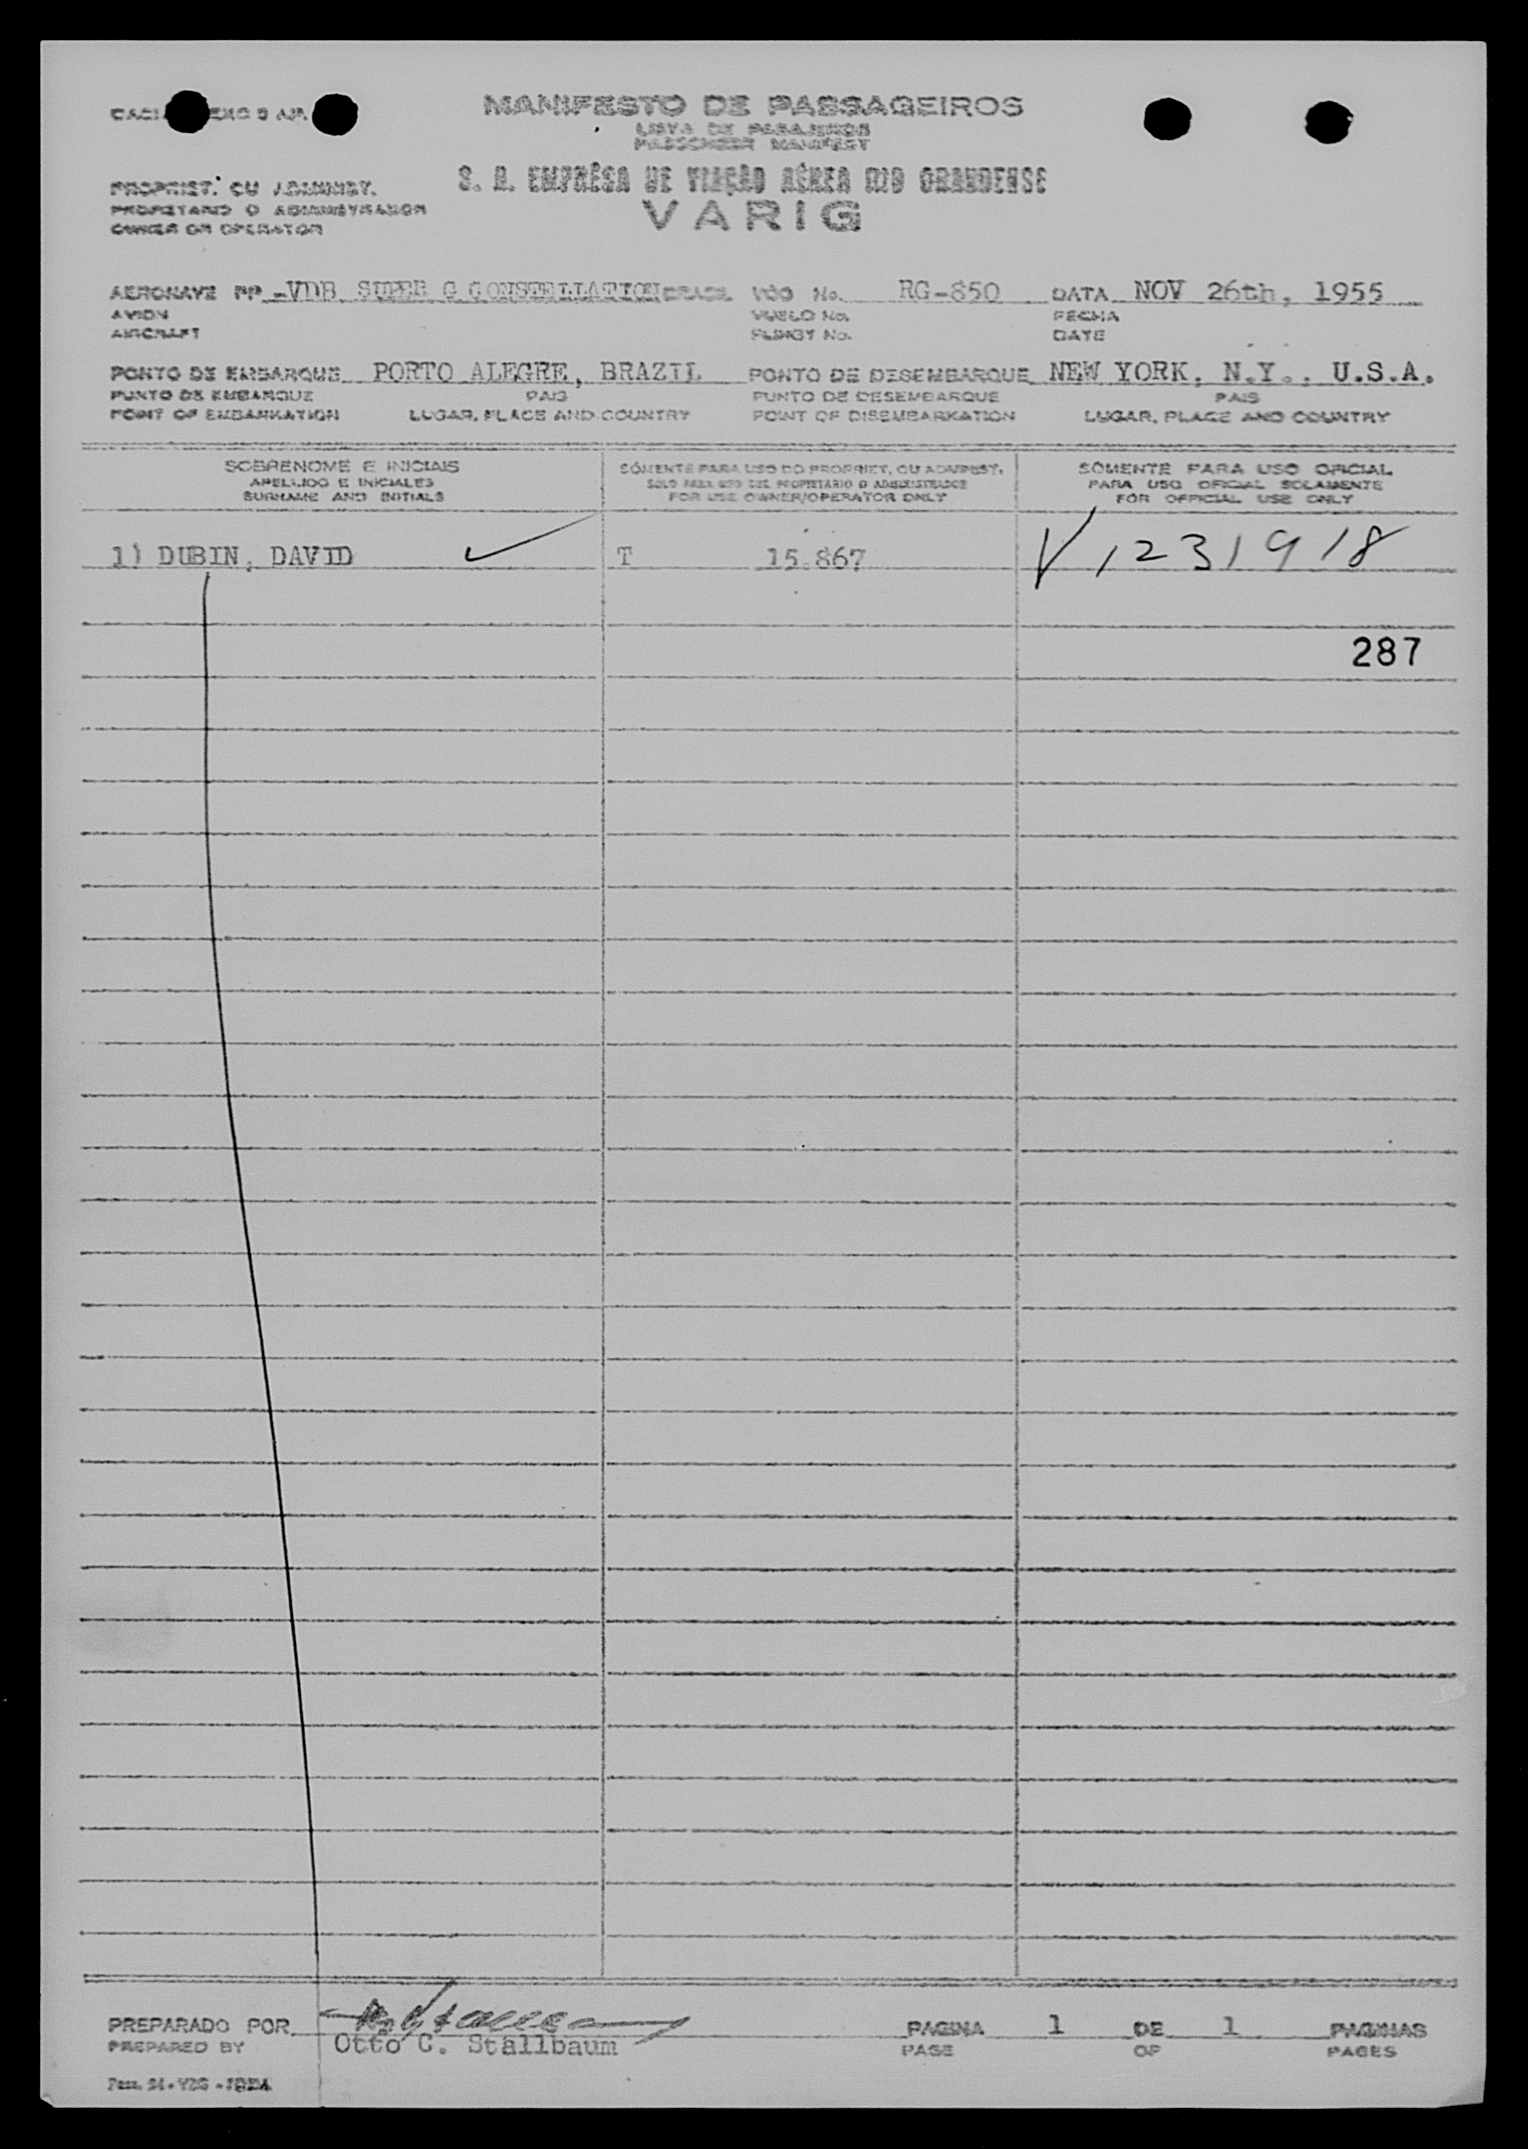 MANIFESTO DE PASSAGEIROS
LISTA DE PASAJEROS
PASSENGER MANIFEST
S. A. EMPRÊSA DE VIAÇÃO AÉREA RIO GRANDENSE
VARIG
PROPRIET. OU ADMINIST.
PROPIETARIO O ADMINISTRADOR
OWNER OR OPERATOR
AERONAVE PP -VDB SUPER G CONSTELLATION BRASIL VÔO No. RG-850 DATA NOV 26th, 1955
AVION VUELO No. FECHA
AIRCRAFT FLIGHT No. DATE
PONTO DE EMBARQUE PORTO ALEGRE, BRAZIL PONTO DE DESEMBARQUE NEW YORK, N.Y., U.S.A.
PUNTO DE EMBARQUE PAIS PUNTO DE DESEMBARQUE PAIS
POINT OF EMBARKATION LUGAR, PLACE AND COUNTRY POINT OF DISEMBARKATION LUGAR, PLACE AND COUNTRY
SOBRENOME E INICIAIS SÓMENTE PARA USO DO PROPRIET. OU ADMINIST. SÓMENTE PARA USO OFICIAL
APELLIDO E INICIALES SOLO PARA USO DEL PROPIETARIO O ADMINISTRADOR PARA USO OFICIAL SOLAMENTE
SURNAME AND INITIALS FOR USE OWNER/OPERATOR ONLY FOR OFFICIAL USE ONLY
1) DUBIN, DAVID T 15.867 V 1231918
287
PREPARADO POR PAGINA 1 DE 1 PAGINAS
PREPARED BY Otto C. Stallbaum PAGE OF PAGES